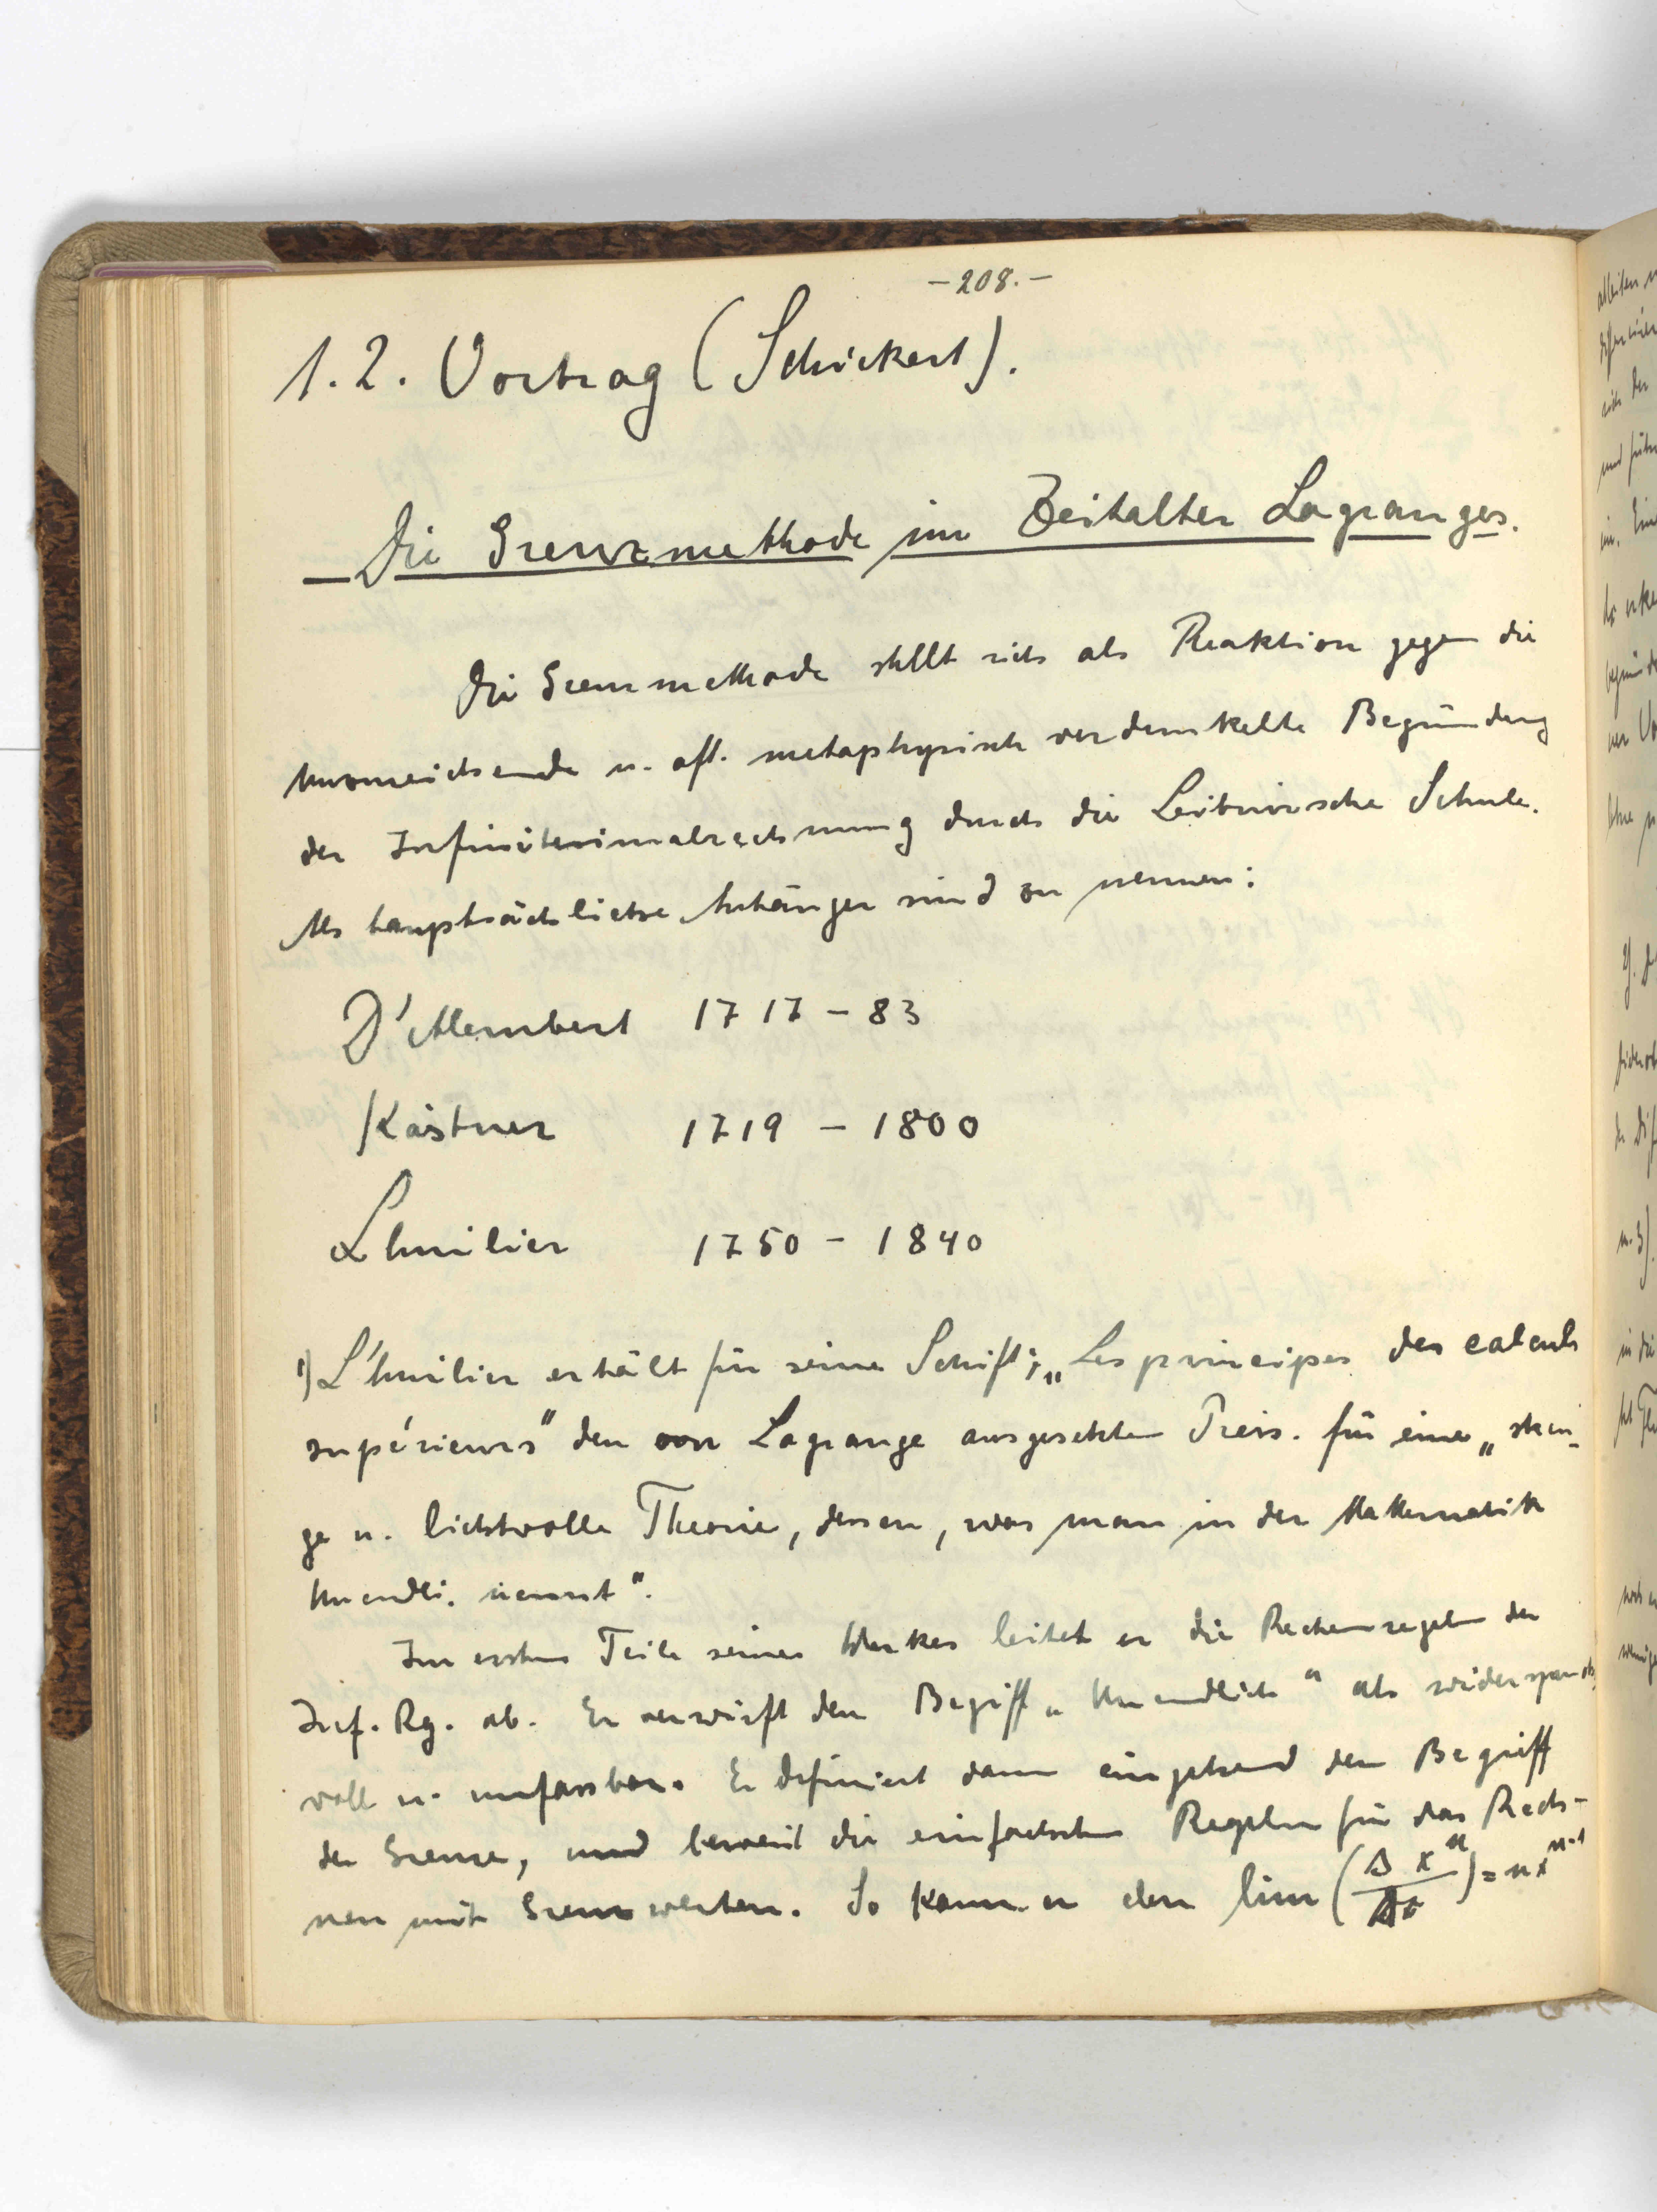 -208.-
1.2. Vortrag (Schickert).
Die Grenzmethode im Zeitalter Lagranges.
Die Grenzmethode stellt sich als Reaktion gegen die
unzureichende u. oft. metaphysisch verdunkelte Begründung
der Infinitesimalrechnung durch die Leibnizsche Schule.
Als hauptsächlichste Anhänger sind zu nennen:
D'Alembert 1717 – 83
Kästner 1719 – 1800
Lhuilier 1750 – 1840
1) L'huilier erhält für seine Schrift; „Les principes des calculs
supérieurs" den von Lagrange ausgesetzten Preis. für eine „stren-
ge u. lichtvolle Theorie, dessen, was man in der Mathematik
Unendli. nennt".
Im ersten Teile seines Werkes leitet er die Rechenregeln der
Inf. Rg. ab. Er verwirft den Begriff „Unendlich" als widerspruchs
voll u. unfassbar. Er definiert dann eingehend den Begriff
der Grenze, und beweist die einfachsten Regeln für das Rech-
nen mit Grenzwerten. So kann er den lim (Δ x^n / Δx) = nx^{n-1}